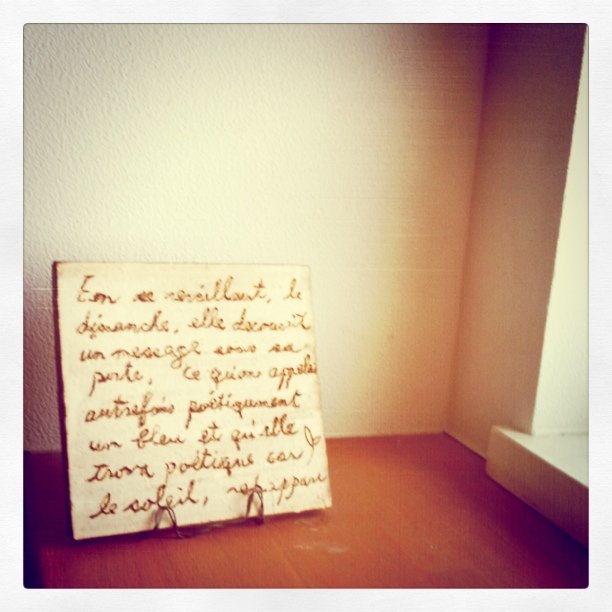 En se réveillant, le
dimanche, elle découvrit
un message sous sa
porte, ce qu'on appelait
autrefois poétiquement
un bleu et qu'elle
trouva poétique car
le soleil, réapparu